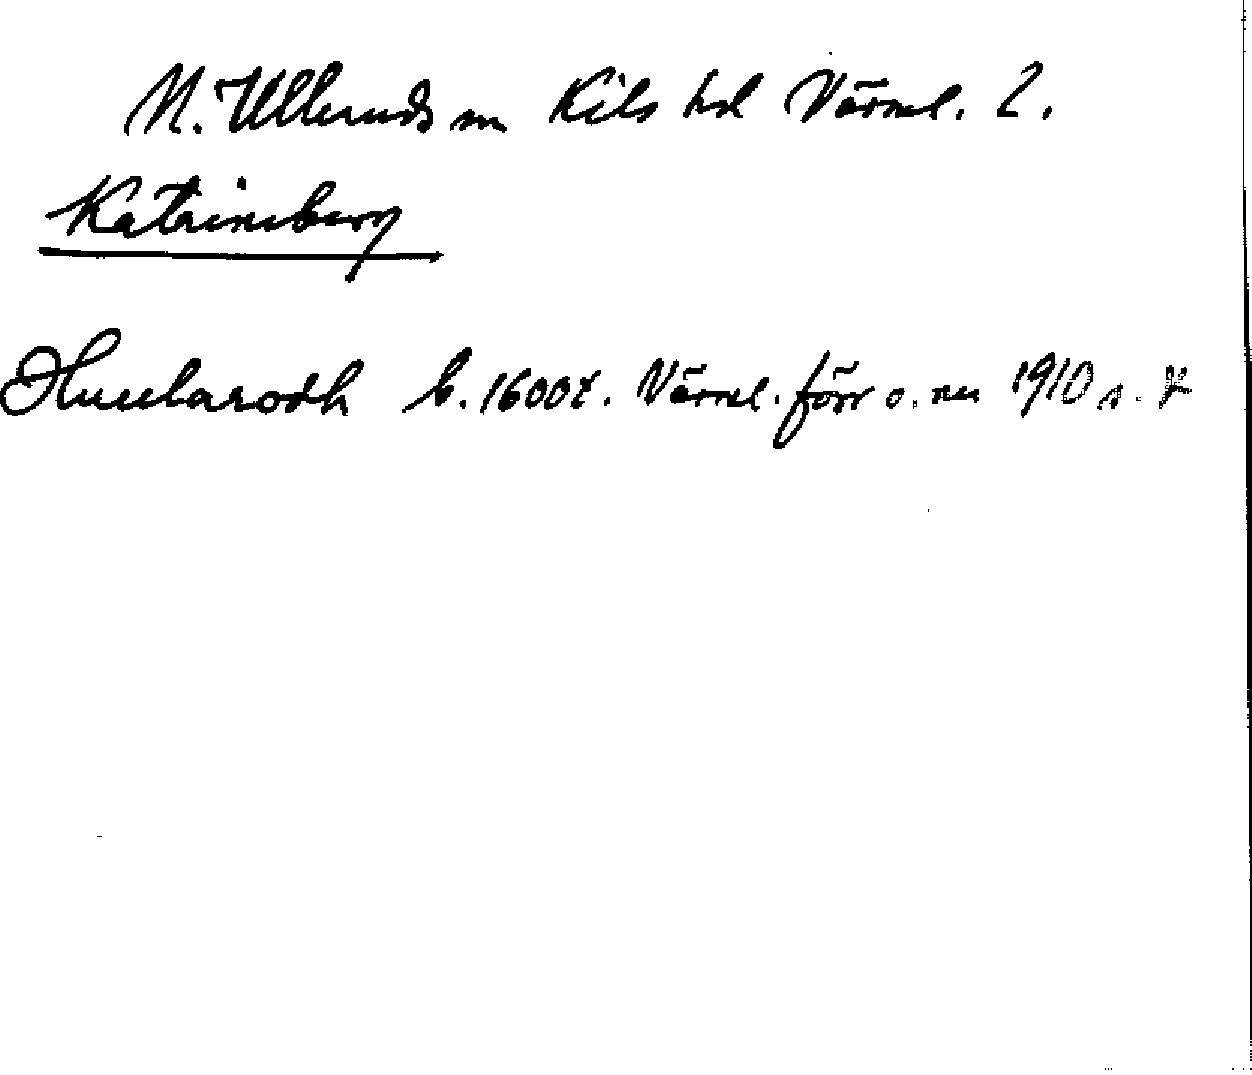 N. Ulleruds sn Kils hd Värml. L.
Katrineberg
Humlarodh b. 1600t. Värml. förr o. nu 1910 s.